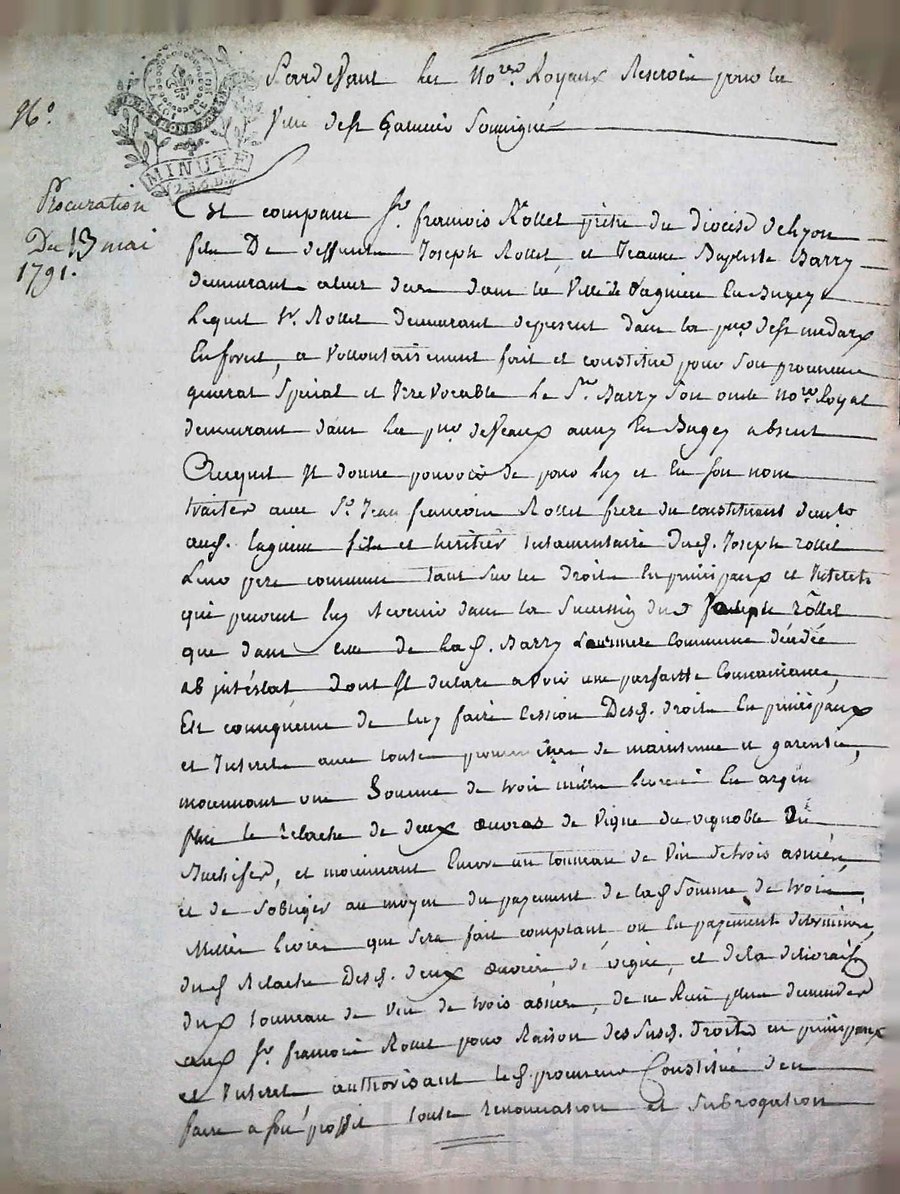 Pardevant les No.res Royaux Reservés pour la
Ville de St Galmier Soussigné
N°.
MINUTE
Procuration
Du 13 mai
1791.
Est comparu Sr. francois Rollet prêtre du diocese de Lyon
fils De deffunts Joseph Rollet et Jeanne Baptiste Barry
demeurant dans la Ville de Lagnieu En Bugey
Lequel Sr. Rollet demeurant depresent dans la par. de St medard
En forest, a Vollontairement fait et constitué pour Son procureur
general Special et Irrevocable Le Sr. Barry Son oncle No.re Royal
demeurant dans la par. de Vaux aussy En Bugey absent
Auquel Il donne pouvoir de pour Luy et En Son nom
traiter avec Sr. Jean francois Rollet frere du constituant
aud. Lagnieu fils et heritier testamentaire dud. Joseph rollet
Leur pere commun tant Sur les droits En principaux et Interets
qui peuvent luy Revenir dans la Succession dud Joseph rollet
que dans celle de lad. Barry Leur mere Commune décédée
ab intéstat dont Il declare avoir une parfaitte Connaissance,
En consequence de luy faire Cession Desd. droits En principaux
et Interets avec toute promesse de maintenue et garentie,
moiennant une Somme de trois mille livres En argent
plus le relache de deux œuvres de Vigne du vignoble De
et moiennant Encore un tonneau de Vin de trois asnées,
et de S'obliger au moyen du payement de lad Somme de trois
Mille livres qui Sera fait comptant ou En payements determinés,
dud Relache Desd. deux œuvres de vigne, et de la delivraison
dud tonneau de Vin de trois asnées, de ne Rien plus demander
aud Sr. francois Rollet pour Raison des Susd. droits en principaux
et Interet authorisant led. procureur Constitué d'en
faire a Son proffit toute renonciation et Subrogation